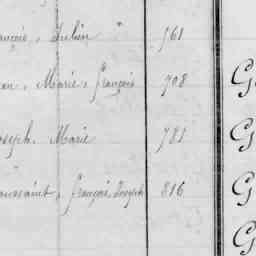 ançois, Julien " 761
ean, Marie, françois 708 G
oseph, Marie 781 G
oussaint, françois, Joseph 816 G
G